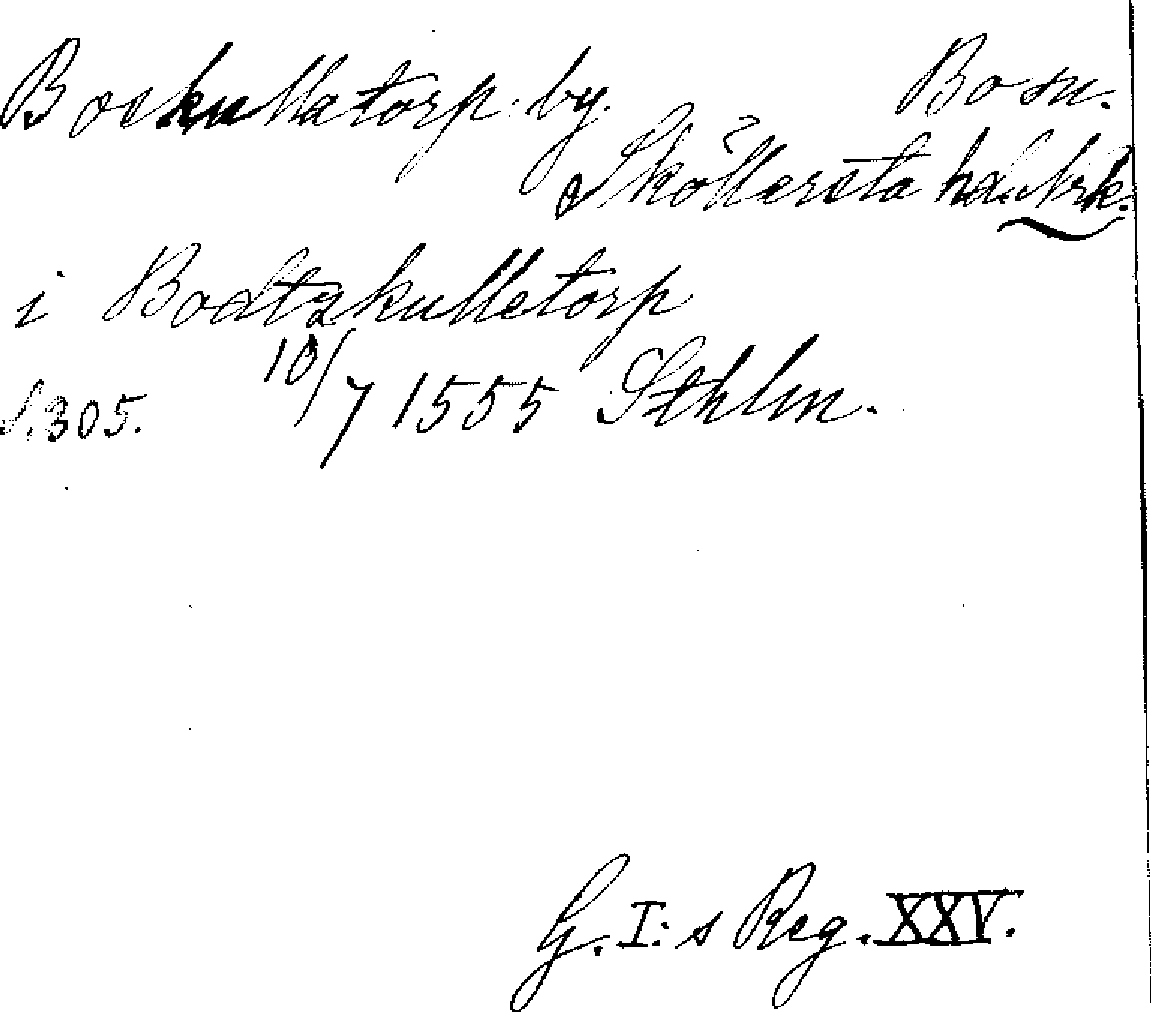 Boskullatorp by. Bo sn.
Sköllersta hd. Nrk.
i Bodtzkulletorp
s. 305. 10/7 1555 Sthlm.
G. I:s Reg. XXV.